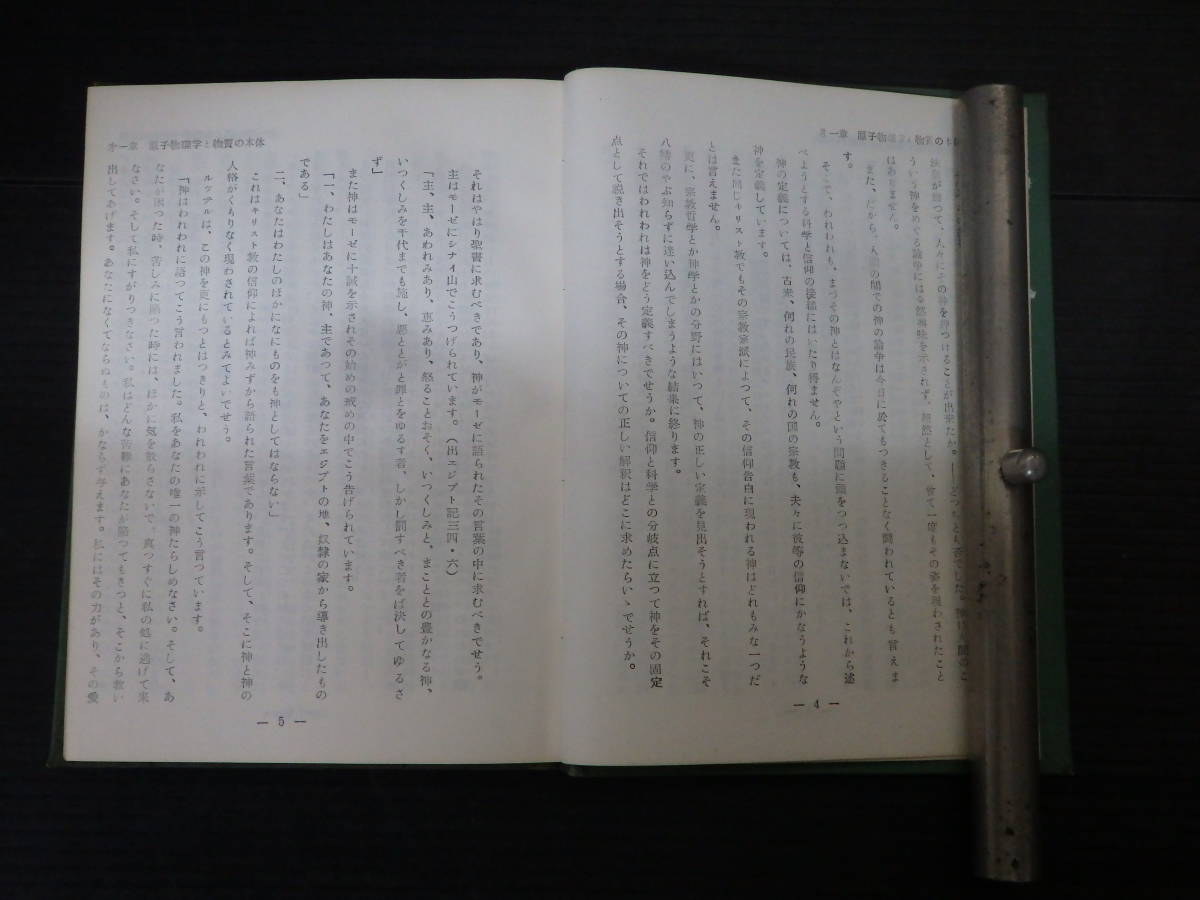 才一章 原子物理学と物質の本体
決着が緬つて、人々にその神を押つけることが出来たか。――どつちとも否でした。神は人間のこ
ういう神をめぐる論争には全然興味を示されず、超然として、曾て一度もその姿を現わされたこと
はありません。
また、だから、人間の間での神の論争は今日に於てもつきることなく闘われているとも言えま
す。
そこで、われわれも、まづその神とはなんぞやという問題に頭をつつ込まないでは、これから述
べようとする科学と信仰の接緒にはいたり得ません。
神の定義については、古来、何れの民族、何れの国の宗教も、夫々に彼等の信仰にかなうような
神を定義しています。
また同じキリスト教でもその宗教宗派によつて、その信仰告白に現われる神はどれもみな一つだ
とは言えません。
更に、宗教哲学とか神学とかの分野にはいつて、神の正しい定義を見出そうとすれば、それこそ
八幡のやぶ知らずに迷い込んでしまうような結果に終ります。
それではわれわれは神をどう定義すべきでせうか。信仰と科学との分岐点に立つて神をその固定
点として説き出そうとする場合、その神についての正しい解釈はどこに求めたらいゝでせうか。
― 4 ―
才一章 原子物理学と物質の本体
それはやはり聖書に求むべきであり、神がモーゼに語られたその言葉の中に求むべきでせう。
主はモーゼにシナイ山でこうつげられています。(出エジプト記三四・六)
「主、主、あわれみあり、恵みあり、怒ることおそく、いつくしみと、まこととの豊かなる神、
いつくしみを千代までも施し、悪ととがと罪とをゆるす者、しかし罰すべき者をば決してゆるさ
ず」
また神はモーゼに十誡を示されその始めの戒めの中でこう告げられています。
「一、わたしはあなたの神、主であつて、あなたをエジプトの地、奴隷の家から導き出したもの
である」
二、あなたはわたしのほかになにものをも神としてはならない」
これはキリスト教の信仰によれば神みずから語られた言葉であります。そして、そこに神と神の
人格がくもりなく現わされているとみてよいでせう。
ルッテルは、この神を更にもつとはつきりと、われわれに示してこう言つています。
「神はわれわれに語つてこう言われました。私をあなたの唯一の神たらしめなさい。そして、あ
なたが困つた時、苦しみに陥つた時には、ほかに気を散らさないで、真つすぐに私の処に逃げて来
なさい。そして私にすがりつきなさい。私はどんな苦難にあなたが陥つてもきつと、そこから救い
出してあげます。あなたになくてならぬものは、かならず与えます。私にはその力があり、その愛
― 5 ―